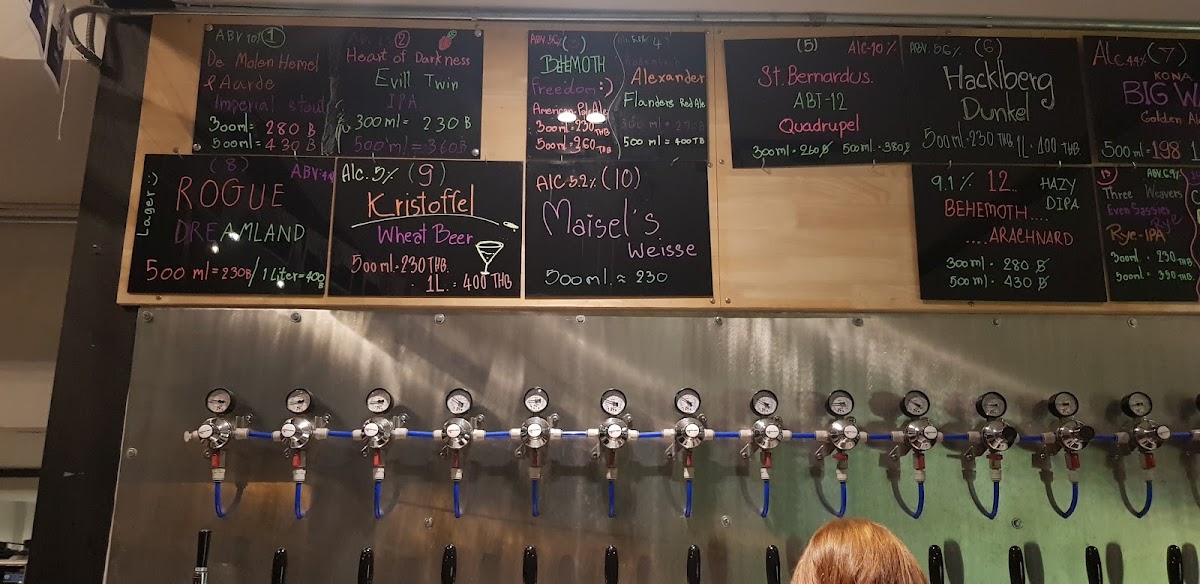 ABV 10% (1)
De Molen Hemel
& Aarde
Imperial stout
300ml = 280 B
500ml = 430 B
(2)
Heart of Darkness
Evill Twin
IPA
300ml = 230 B
500ml = 360B
ABV. 5%
BEHEMOTH
Freedom :)
American Pale Ale
300ml = 230 THB
500ml = 260 THB
4
Alexander
Flanders Red Ale
500 ml = 400 THB
(5) Alc-10%
St. Bernardus.
ABT-12
Quadrupel
300ml = 260 B 500ml = 380 B
ABV. 5.6% (6)
Hacklberg
Dunkel
500ml = 230 THB 1L = 400 THB
Alc 4.4% (7)
KONA
BIG W
Golden Al
500ml = 198 1
(8) ABV:
Lager :)
ROGUE
DREAMLAND
500 ml = 230B / 1 Liter = 400B
Alc. 5% (9)
Kristoffel
Wheat Beer
500ml = 230 THB.
1L. = 400 THB
Alc 5.2% (10)
Maisel's
Weisse
500ml. = 230
9.1% 12.. HAZY
DIPA
BEHEMOTH....
....ARACHNARD
300ml = 280 B
500ml = 430 B
13 ABV 6.9%
Three Weavers
Even Sassier
Rye
Rye-IPA
300ml = 230 THB
500ml = 390 THB